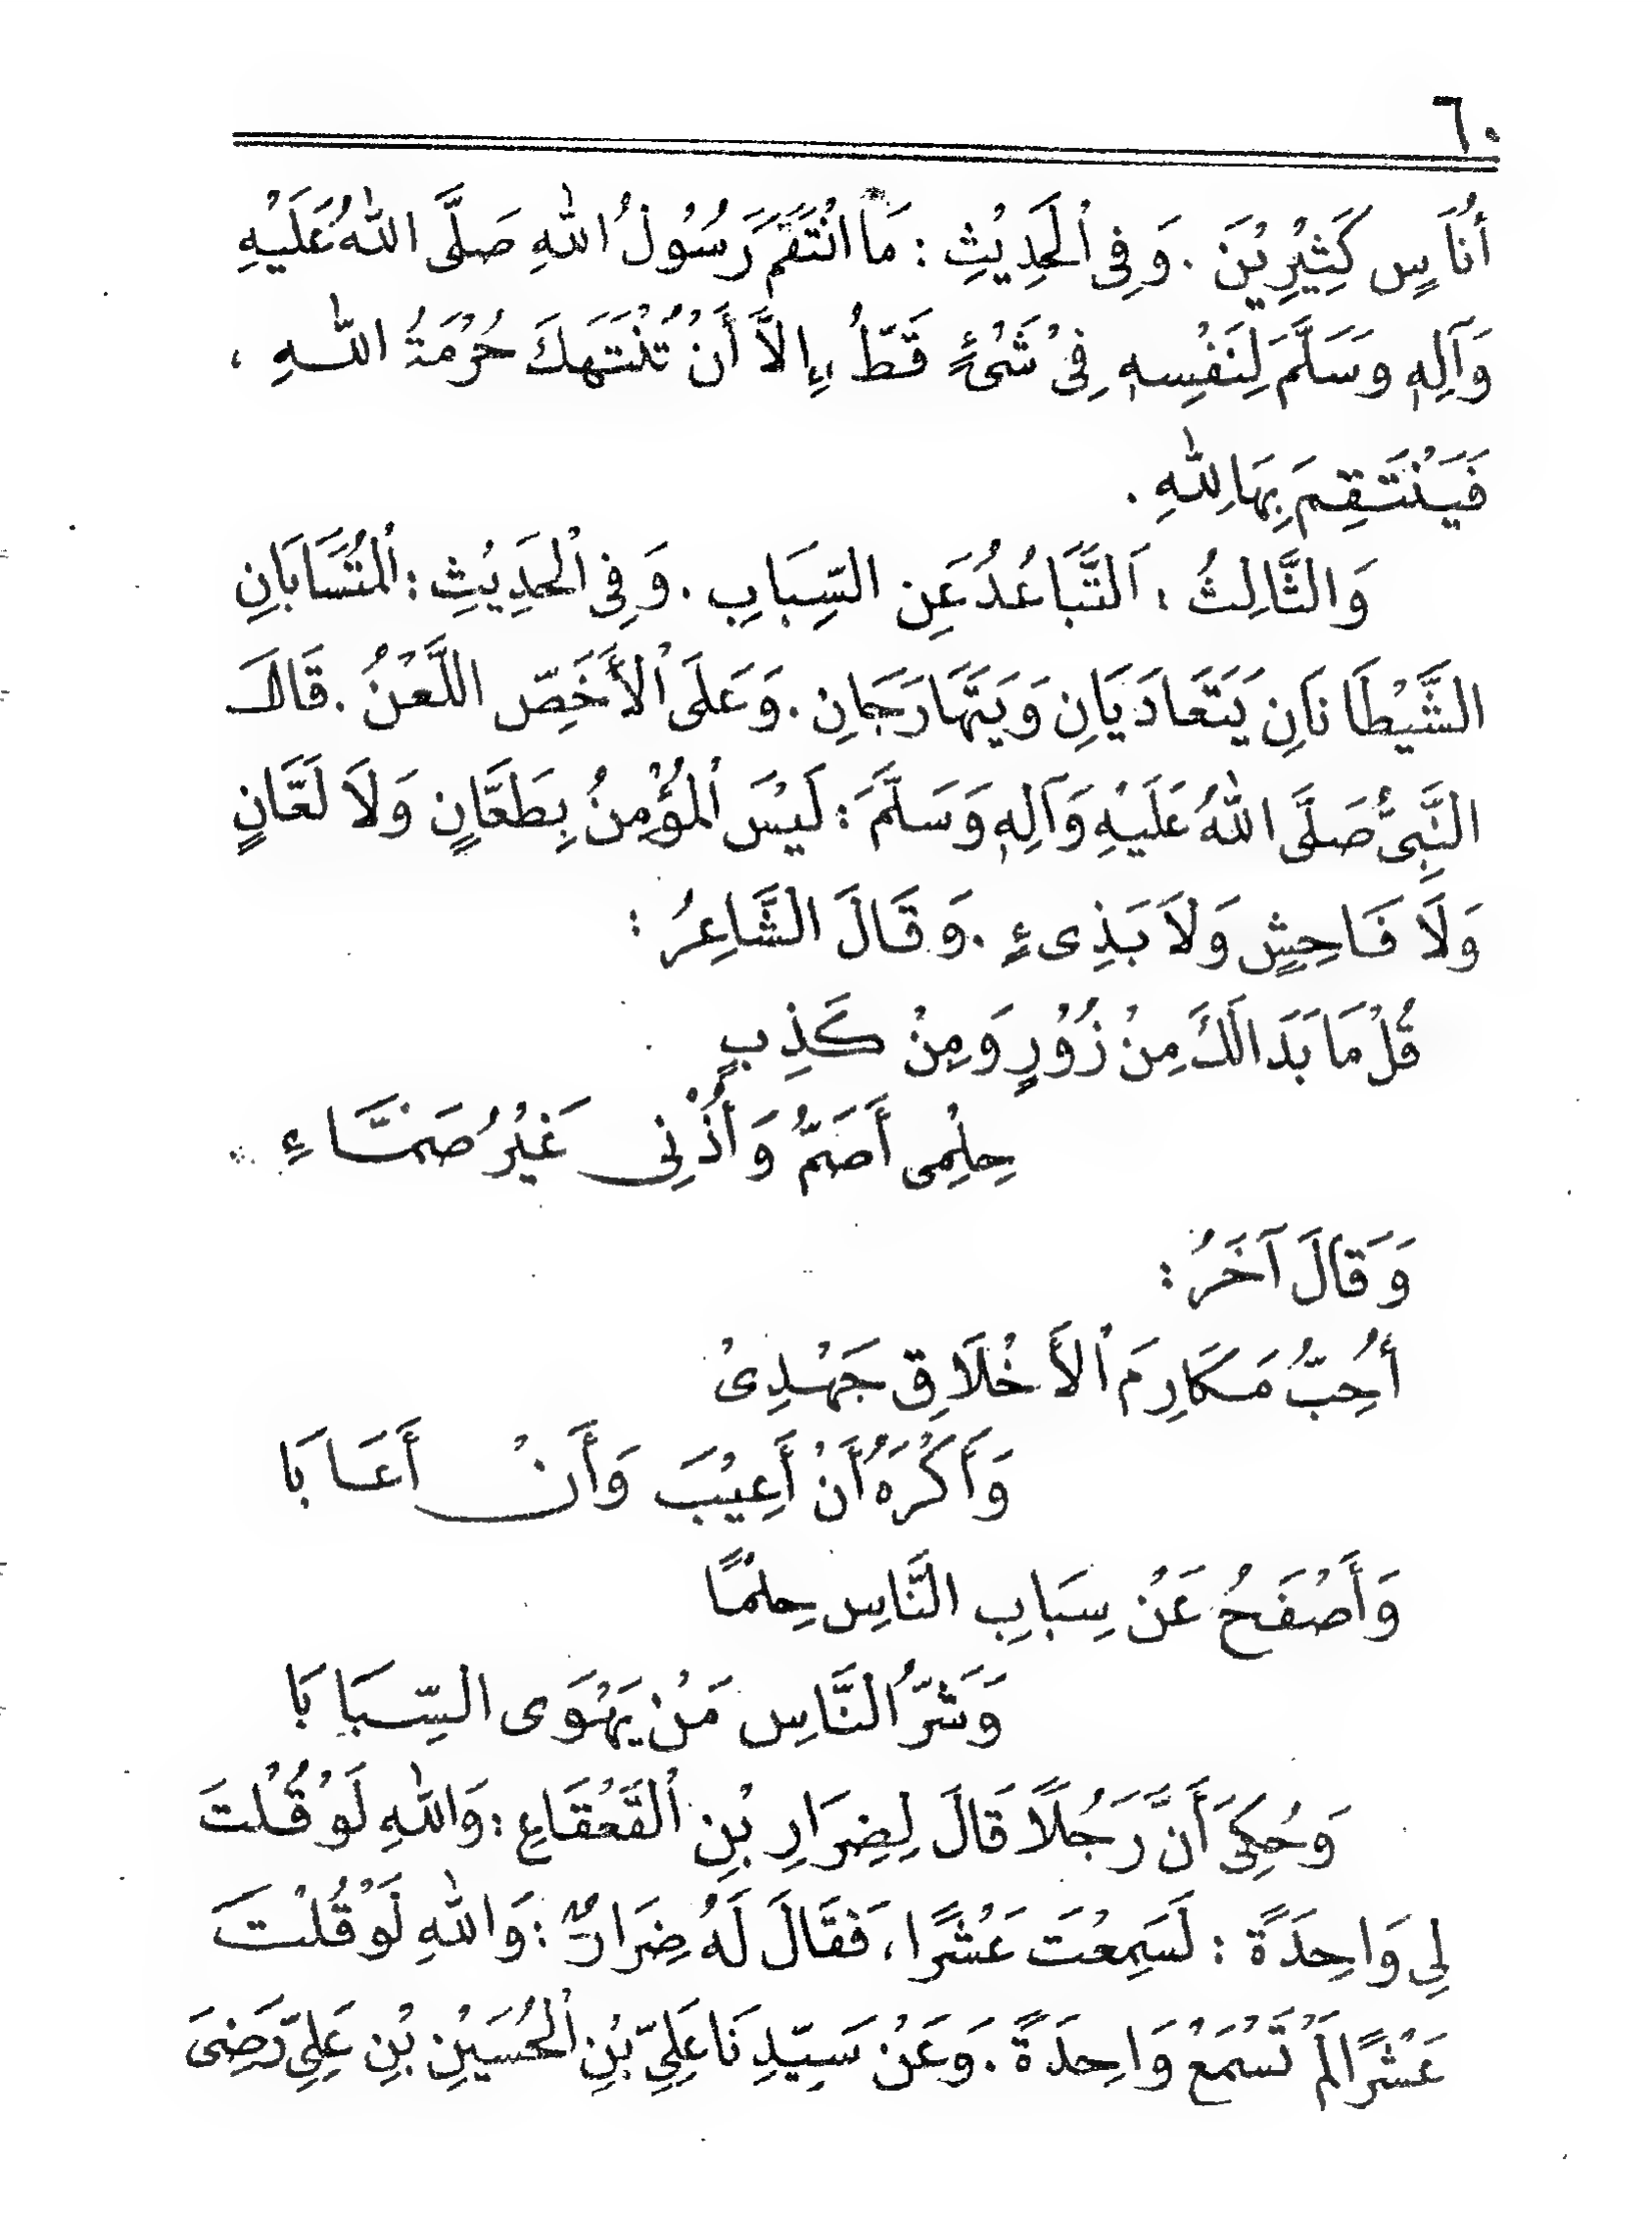 ٦٠
أُنَاسٍ كَثِيْرِيْنَ . وَفِى اْلحَدِيْثِ : مَا انْتَقَمَ رَسُوْلُ اللهِ صَلَّى اللهُ عَلَيْهِ
وَآلِهِ وَسَلَّمَ لِنَفْسِهِ فِىْ شَىْءٍ قَطّ ُ، إِلاَّ أَنْ تُنْتَهَكَ حُرْمَةُ اللهِ ،
فَيَنْتَقِمَ بِهَا لِلّٰهِ .
وَالثَّالِثُ : اَلتَّبَاعُدُ عَنِ السِّبَابِ . وَفِى اْلحَدِيْثِ : اْلمُتَسَابَانِ
الشَّيْطَانَانِ يَتَعَادَيَانِ وَيَتَهَارَجَانِ . وَعَلَى اْلأَخَصِّ اللَّعْنُ . قَالَ
النَّبِىُّ صَلَّى اللهُ عَلَيْهِ وَآلِهِ وَسَلَّمَ : لَيْسَ اْلمُؤْمِنُ بِطَعَّانٍ وَلاَ لَعَّانٍ
وَلَا فَاحِشٍ وَلاَ بَذِىءٍ . وَقَالَ الشَّاعِرُ :
قُلْ مَا بَدَا لَكَ مِنْ زُوْرٍ وَمِنْ كَذِبٍ
حِلْمِى أَصَمُّ وَأُذْنِى غَيْرُ صَمَّاءِ
وَقَالَ آخَرُ :
أُحِبُّ مَكَارِمَ اْلأَخْلَاقِ جَهْدِىْ
وَأَكْرَهُ أَنْ أَعِيْبَ وَأَنْ أَعَابَا
وَأَصْفَحُ عَنْ سِبَابِ النَّاسِ حِلمًا
وَشَرُّ النَّاسِ مَنْ يَهْوَى السِّبَابَا
وَحُكِىَ أَنَّ رَجُلًا قَالَ لِضِرَارِ بْنِ اْلقَعْقَاعِ : وَاللهِ لَوْ قُلْتَ
لِى وَاحِدَةً : لَسَمِعْتَ عَشْرًا ، فَقَالَ لَهُ ضِرَارٌ : وَاللهِ لَوْ قُلْتَ
عَشْرًا لَمْ تَسْمَعْ وَاحِدَةً . وَعَنْ سَيِّدِنَا عَلِيِّ بْنِ اْلحُسَيْنِ بْنِ عَلِيِّ رَضِىَ